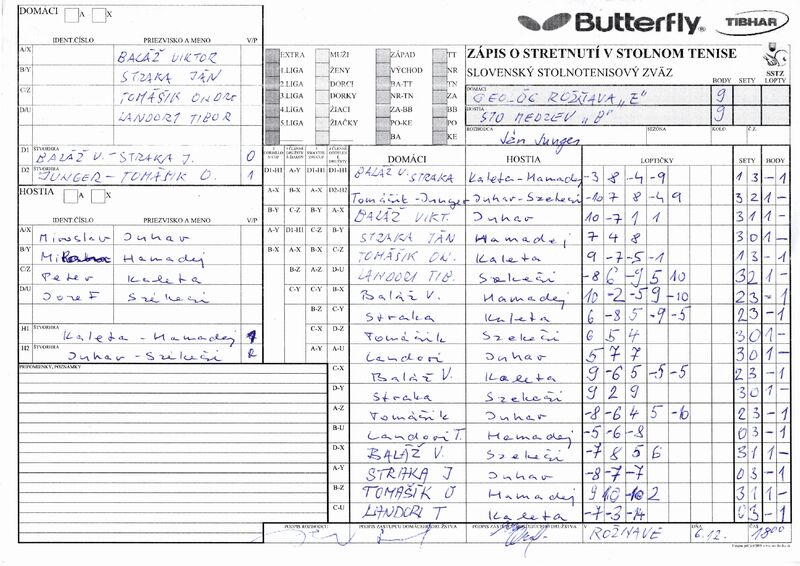 DOMÁCI A X
Butterfly TIBHAR
IDENT.ČÍSLO PRIEZVISKO A MENO V/P
A/X BALÁŽ VIKTOR
B/Y STRAKA JÁN
C/Z TOMÁŠIK ONDRE
D/U LANDORI TIBOR
D1 ŠTVORHRA BALÁŽ V. - STRAKA J. 0
D2 ŠTVORHRA JUNGER - TOMÁŠIK O. 1
EXTRA MUŽI ZÁPAD TT
1.LIGA ŽENY VÝCHOD NR
2.LIGA DORCI BA-TT TN
3.LIGA DORKY NR-TN ZA
4.LIGA ŽIACI ZA-BB BB
5.LIGA ŽIAČKY PO-KE PO
BA KE
ZÁPIS O STRETNUTÍ V STOLNOM TENISE
SLOVENSKÝ STOLNOTENISOVÝ ZVÄZ
SSTZ
BODY SETY LOPTY
DOMÁCI GEOLÓG ROŽŇAVA „E" 9
HOSTIA STO MEDZEV „B" 9
ROZHODCA Ján Junger SEZÓNA KOLO Č.Z.
HOSTIA A X
IDENT.ČÍSLO PRIEZVISKO A MENO V/P
A/X Miroslav Juhar
B/Y Hamadej
C/Z Peter Kaleta
D/U Jozef Székeši
H1 ŠTVORHRA Kaleta - Hamadej 1
H2 ŠTVORHRA Juhar - Székeši
PRIPOMIENKY, POZNÁMKY
DOMÁCI HOSTIA LOPTIČKY SETY BODY
D1-H1 A-Y D1-H1 D1-H1 BALÁŽ V. STRAKA Kaleta - Hamadej -3 8 -4 -9 1 3 - 1
A-X B-X A-X D2-H2 Tomášik - Junger Juhar - Szekeši -10 7 8 -4 9 3 2 1 -
B-Y C-Z B-Y A-X BALÁŽ VIKT. Juhar 10 -7 1 1 3 1 1 -
A-Y D1-H1 C-Z B-Y STRAKA JÁN Hamadej 7 4 8 3 0 1 -
B-X A-X B-X C-Z TOMÁŠIK ON. Kaleta 9 -7 -5 -1 1 3 - 1
B-Z A-Z D-U LANDORI TIB. Szekeši -8 6 -9 5 10 3 2 1 -
C-Y C-Y B-X Baláž V. Hamadej 10 -2 -5 9 -10 2 3 - 1
B-Z C-Y Straka Kaleta 6 -8 5 -9 -5 2 3 - 1
C-X D-Z Tomášik Szekeši 6 5 4 3 0 1 -
A-Y A-U Landori Juhar 5 7 7 3 0 1 -
C-X Baláž V. Kaleta 9 -6 5 -5 -5 2 3 - 1
D-Y Straka Szekeši 9 2 9 3 0 1 -
A-Z Tomášik Juhar -8 -6 4 5 -10 2 3 - 1
B-U Landori T. Hamadej -5 -6 -8 0 3 - 1
D-X BALÁŽ V. Szekeši -7 8 5 6 3 1 1 -
A-Y STRAKA J Juhar -8 -7 -7 0 3 - 1
B-Z TOMÁŠIK O Hamadej 9 10 -10 2 3 1 1 -
C-U LANDORI T Kaleta -7 -3 -14 0 3 - 1
PODPIS ROZHODCU PODPIS ZÁSTUPCU DOMÁCEHO DRUŽSTVA V ROŽŇAVE DŇA 6.12. ČAS 18⁰⁰